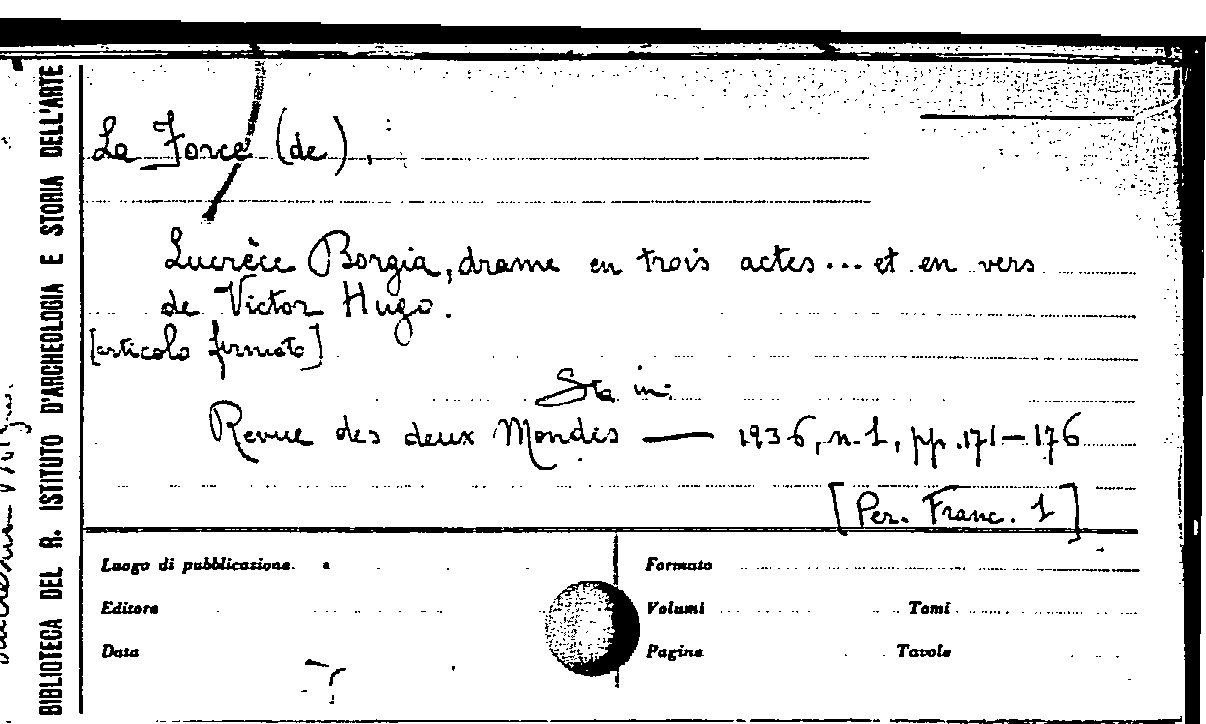 BIBLIOTECA DEL R. ISTITUTO D'ARCHEOLOGIA E STORIA DELL'ARTE
La Force (de),
Lucrèce Borgia, drame en trois actes... et en vers
de Victor Hugo.
[articolo firmato]
Sta in:
Revue des deux Mondes — 1936, n. 1, pp. 171-176
[Per. Franc. 1]
Luogo di pubblicazione
Formato
Editore
Volumi
Tomi
Data
Pagine
Tavole